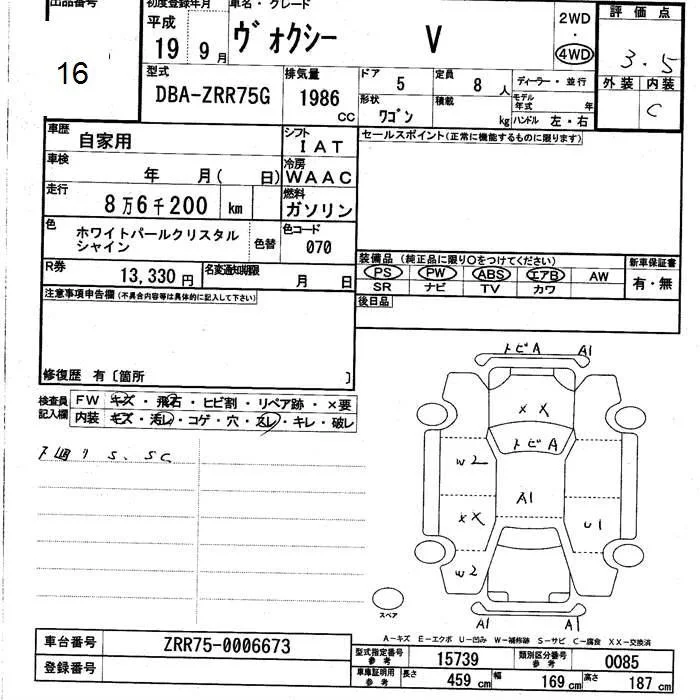 出品番号
16
初度登録年月
平成
19 9月
車名・グレード
ヴォクシー V
2WD
・
4WD
評価点
3.5
外装 内装
C
型式
DBA-ZRR75G
排気量
1986 CC
ドア
5
定員
8 人
形状
ワゴン
積載
kg
ディーラー・並行
モデル年式 年
ハンドル 左・右
車歴
自家用
シフト
IAT
車検
年 月( 日)
冷房
WAAC
走行
8万6千200 km
燃料
ガソリン
色
ホワイトパールクリスタル
シャイン
色替
色コード
070
R券
13,330 円
名変通知期限
月 日
セールスポイント(正常に機能するものに限ります)
装備品 (純正品に限り○をつけてください)
PS PW ABS エアB AW
SR ナビ TV カワ
新車保証書
有・無
後日品
注意事項申告欄(不具合内容等は具体的に記入して下さい)
修復歴 有〔箇所 〕
検査員
記入欄
FW キズ・飛石・ヒビ割・リペア跡・×要
内装 キズ・汚レ・コゲ・穴・スレ・キレ・破レ
下廻り S、SC
トビA A1
XX
トビA
W2
A1
XX
U1
W2
A1 A1
スペア
A-キズ E-エクボ U-凹み W-補修跡 S-サビ C-腐食 XX-交換済
車台番号
ZRR75-0006673
登録番号
型式指定番号
参考
15739
類別区分番号
参考
0085
車庫証明用
参考
長さ 459 cm 幅 169 cm 高さ 187 cm